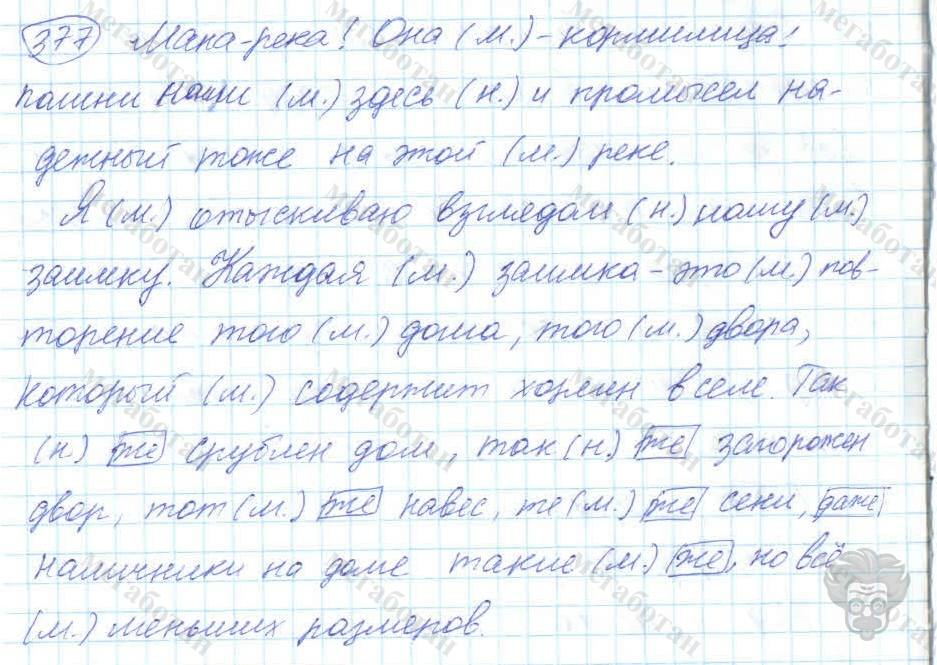 377 Мана-река! Она (м.) - кормилица:
пашни наши (м.) здесь (н.) и промысел на-
дежный тоже на этой (м.) реке.
Я (м.) отыскиваю взглядом (н.) нашу (м.)
заимку. Каждая (м.) заимка - это (м.) пов-
торение того (м.) дома, того (м.) двора,
который (м.) содержит хозяин в селе. Так
(н) же срублен дом, так (н.) же загорожен
двор, тот (м.) же навес, те (м.) же сени, даже
наличники на доме такие (м.) же, но всё
(м.) меньших размеров.
Мегаботан